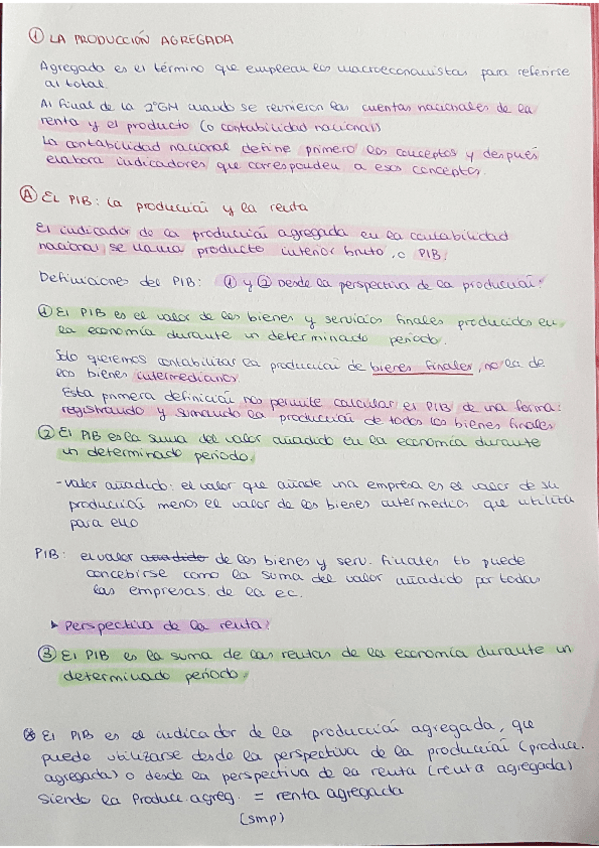 ① LA PRODUCCIÓN AGREGADA
Agregada es el término que emplean los macroeconomistas para referirse
al total.
Al final de la 2ªGM cuando se reunieron las cuentas nacionales de la
renta y el producto (o contabilidad nacional)
La contabilidad nacional define primero los conceptos y después
elabora indicadores que corresponden a esos conceptos.
Ⓐ EL PIB: la producción y la renta
El indicador de la producción agregada en la contabilidad
nacional se llama producto interior bruto, o PIB.
Definiciones del PIB: ① y ② Desde la perspectiva de la producción:
① El PIB es el valor de los bienes y servicios finales producidos en
la economía durante un determinado período.
Solo queremos contabilizar la producción de bienes finales, no la de
los bienes intermediarios.
Esta primera definición nos permite calcular el PIB de una forma:
registrando y sumando la producción de todos los bienes finales
② El PIB es la suma del valor añadido en la economía durante
un determinado período.
- valor añadido: el valor que añade una empresa es el valor de su
producción menos el valor de los bienes intermedios que utiliza
para ello
PIB: el valor añadido de los bienes y serv. finales tb puede
concebirse como la suma del valor añadido por todas
las empresas de la ec.
▸ Perspectiva de la renta:
③ El PIB es la suma de las rentas de la economía durante un
determinado período.
⊛ El PIB es el indicador de la producción agregada, que
puede utilizarse desde la perspectiva de la producción (produce.
agregada) o desde la perspectiva de la renta (renta agregada)
siendo la Produce. agreg. = renta agregada
(smp)